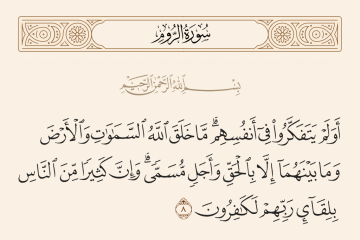 سُورَةُ الرُّومِ
بِسْمِ اللَّهِ الرَّحْمَٰنِ الرَّحِيمِ
أَوَلَمْ يَتَفَكَّرُوا۟ فِىٓ أَنفُسِهِم ۗ مَّا خَلَقَ ٱللَّهُ ٱلسَّمَـٰوَٰتِ وَٱلْأَرْضَ
وَمَا بَيْنَهُمَآ إِلَّا بِٱلْحَقِّ وَأَجَلٍ مُّسَمًّى ۗ وَإِنَّ كَثِيرًا مِّنَ ٱلنَّاسِ
بِلِقَآئِ رَبِّهِمْ لَكَـٰفِرُونَ ٨